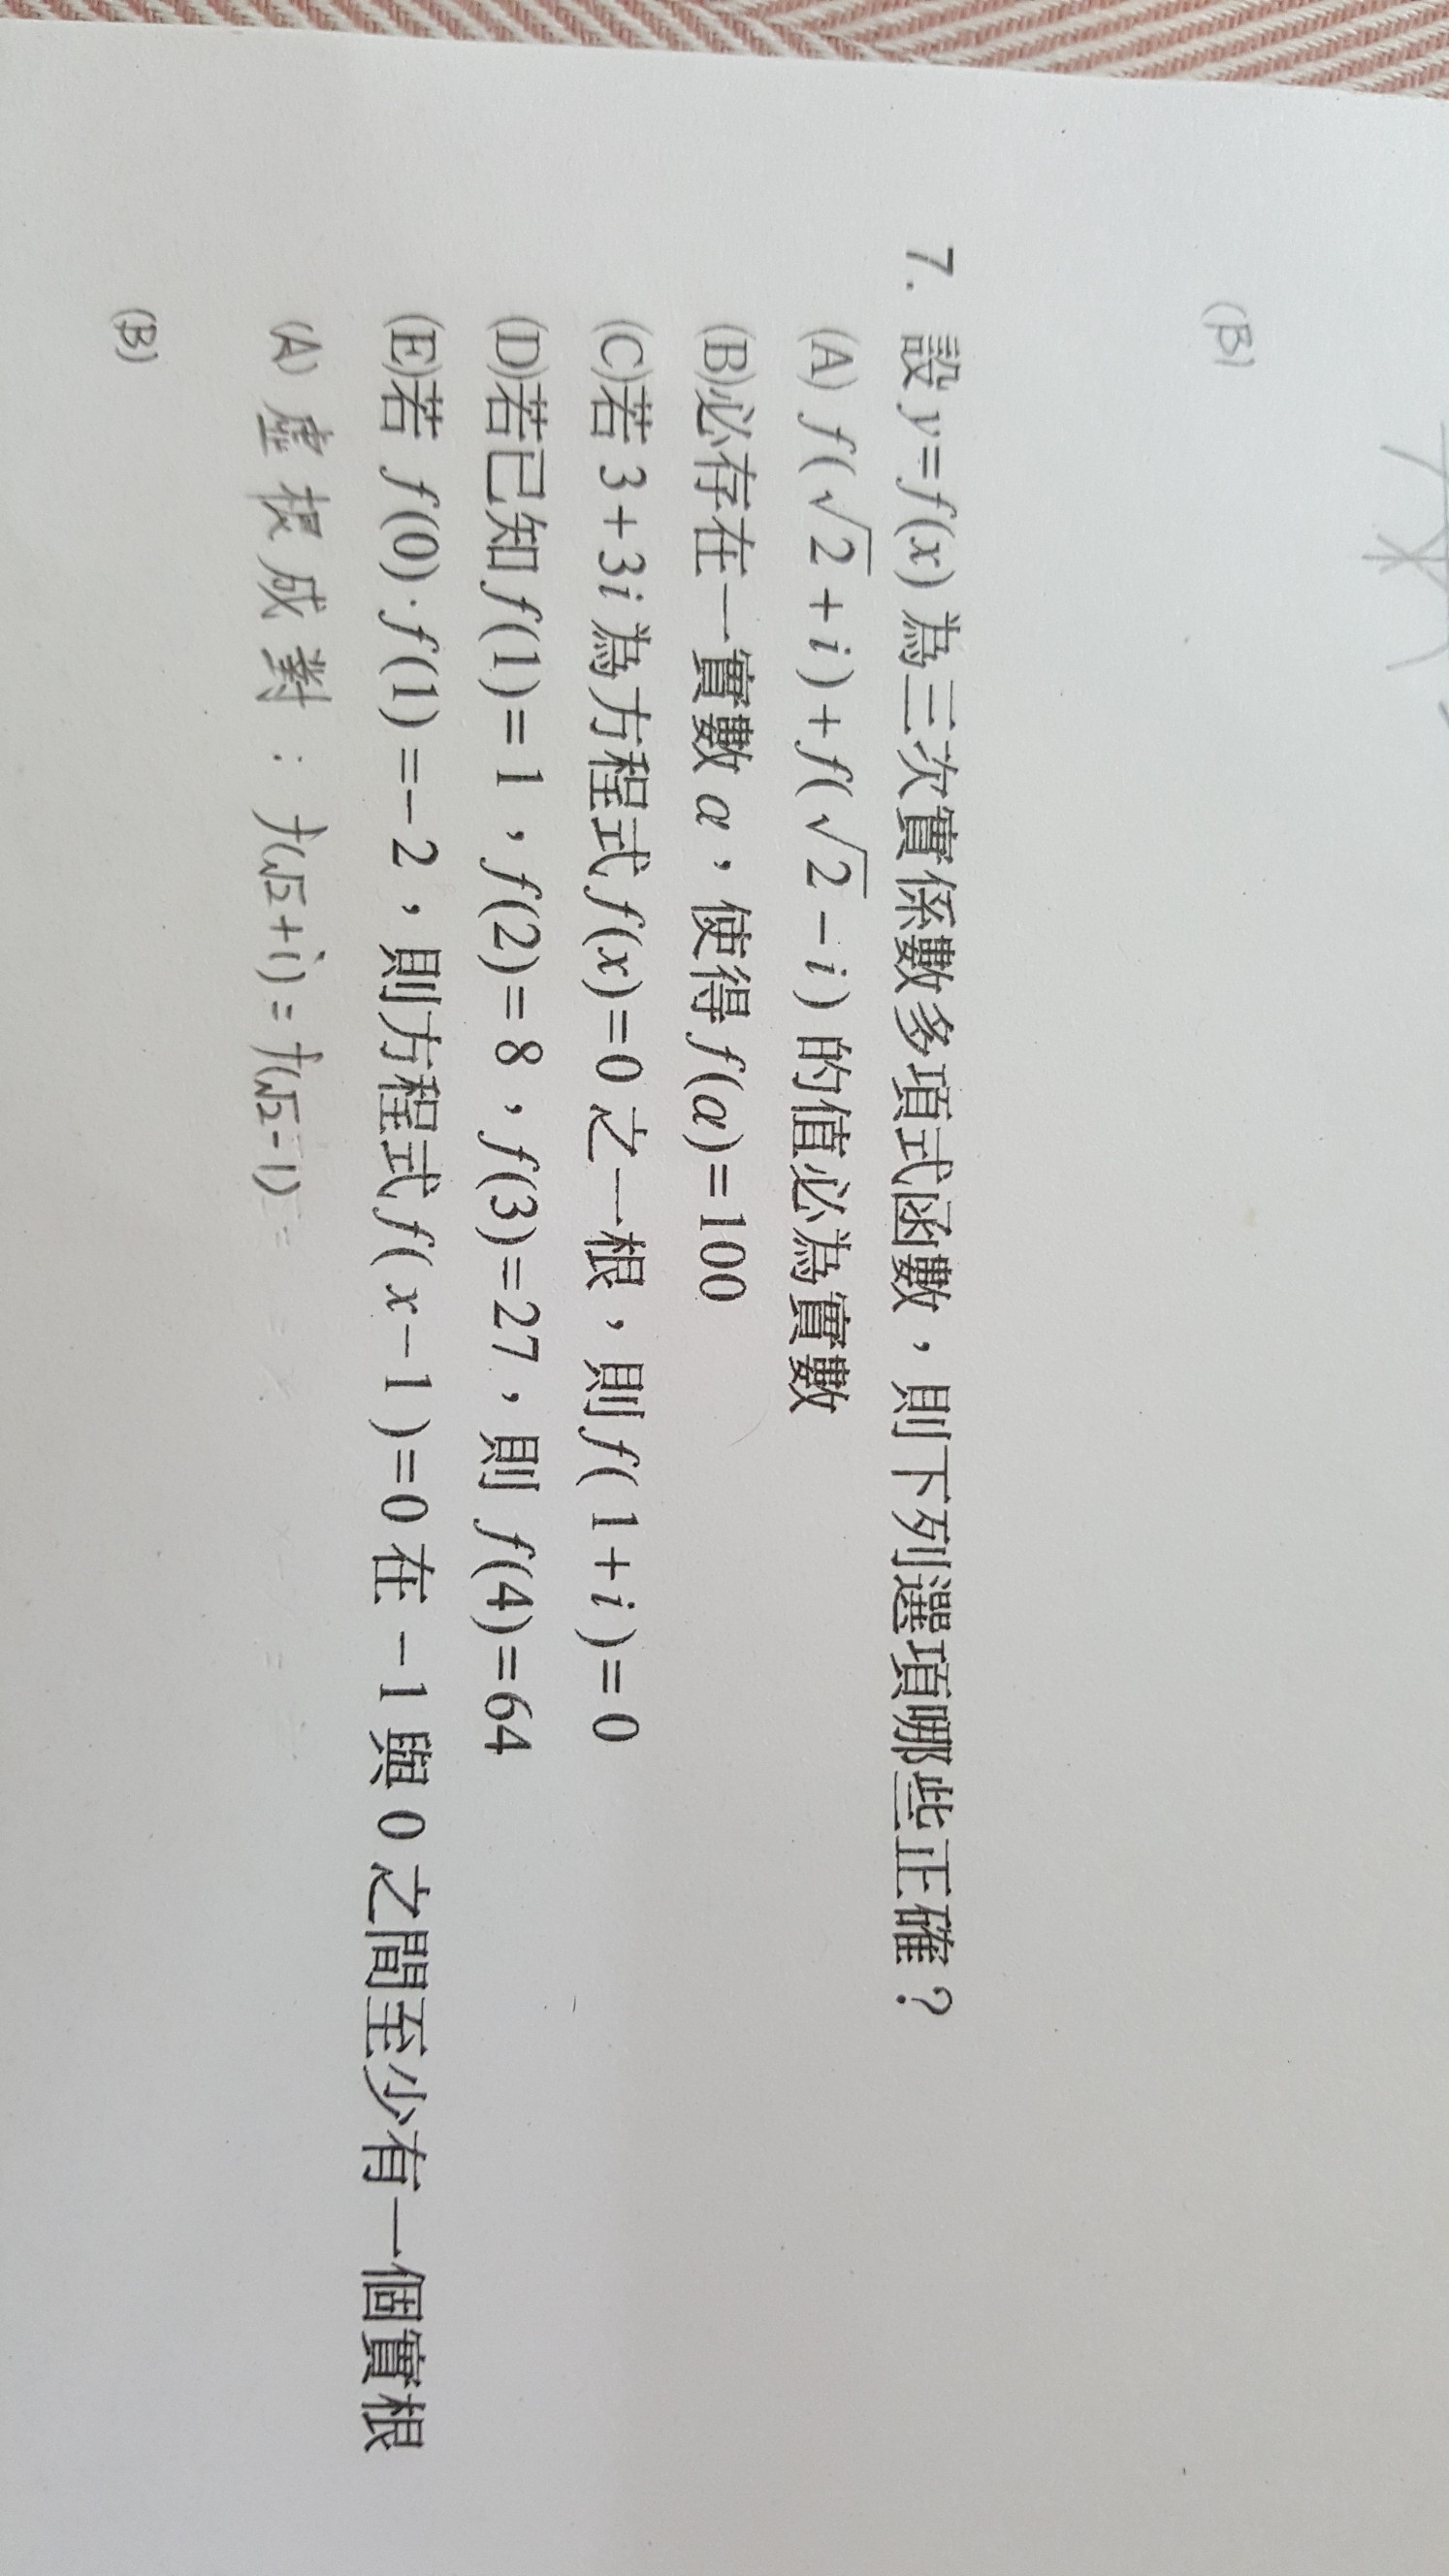 (B)
7. 設 y=f(x) 為三次實係數多項式函數，則下列選項哪些正確？
(A) f(√2+i)+f(√2−i) 的值必為實數
(B)必存在一實數 α，使得 f(α)=100
(C)若 3+3i 為方程式 f(x)=0 之一根，則 f(1+i)=0
(D)若已知 f(1)=1，f(2)=8，f(3)=27，則 f(4)=64
(E)若 f(0)·f(1)=−2，則方程式 f(x−1)=0 在 −1 與 0 之間至少有一個實根
(A) 虛根成對：f(√2+i)=f(√2-1)=
(B)